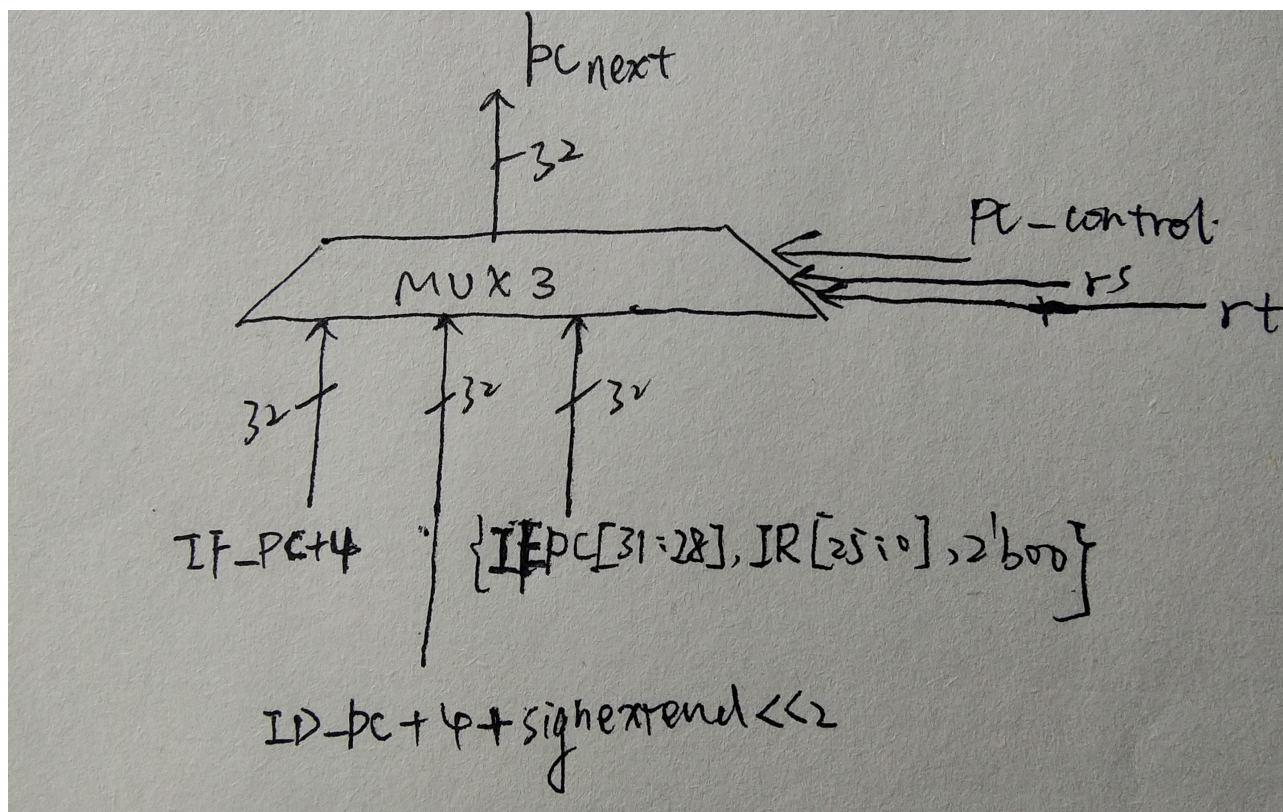 pcnext
32
PC-control.
MUX3
rs
rt
32
32
32
IF_PC+4
{IFPC[31:28], IR[25:0], 2'b00}
ID_pc+4+sighextend<<2